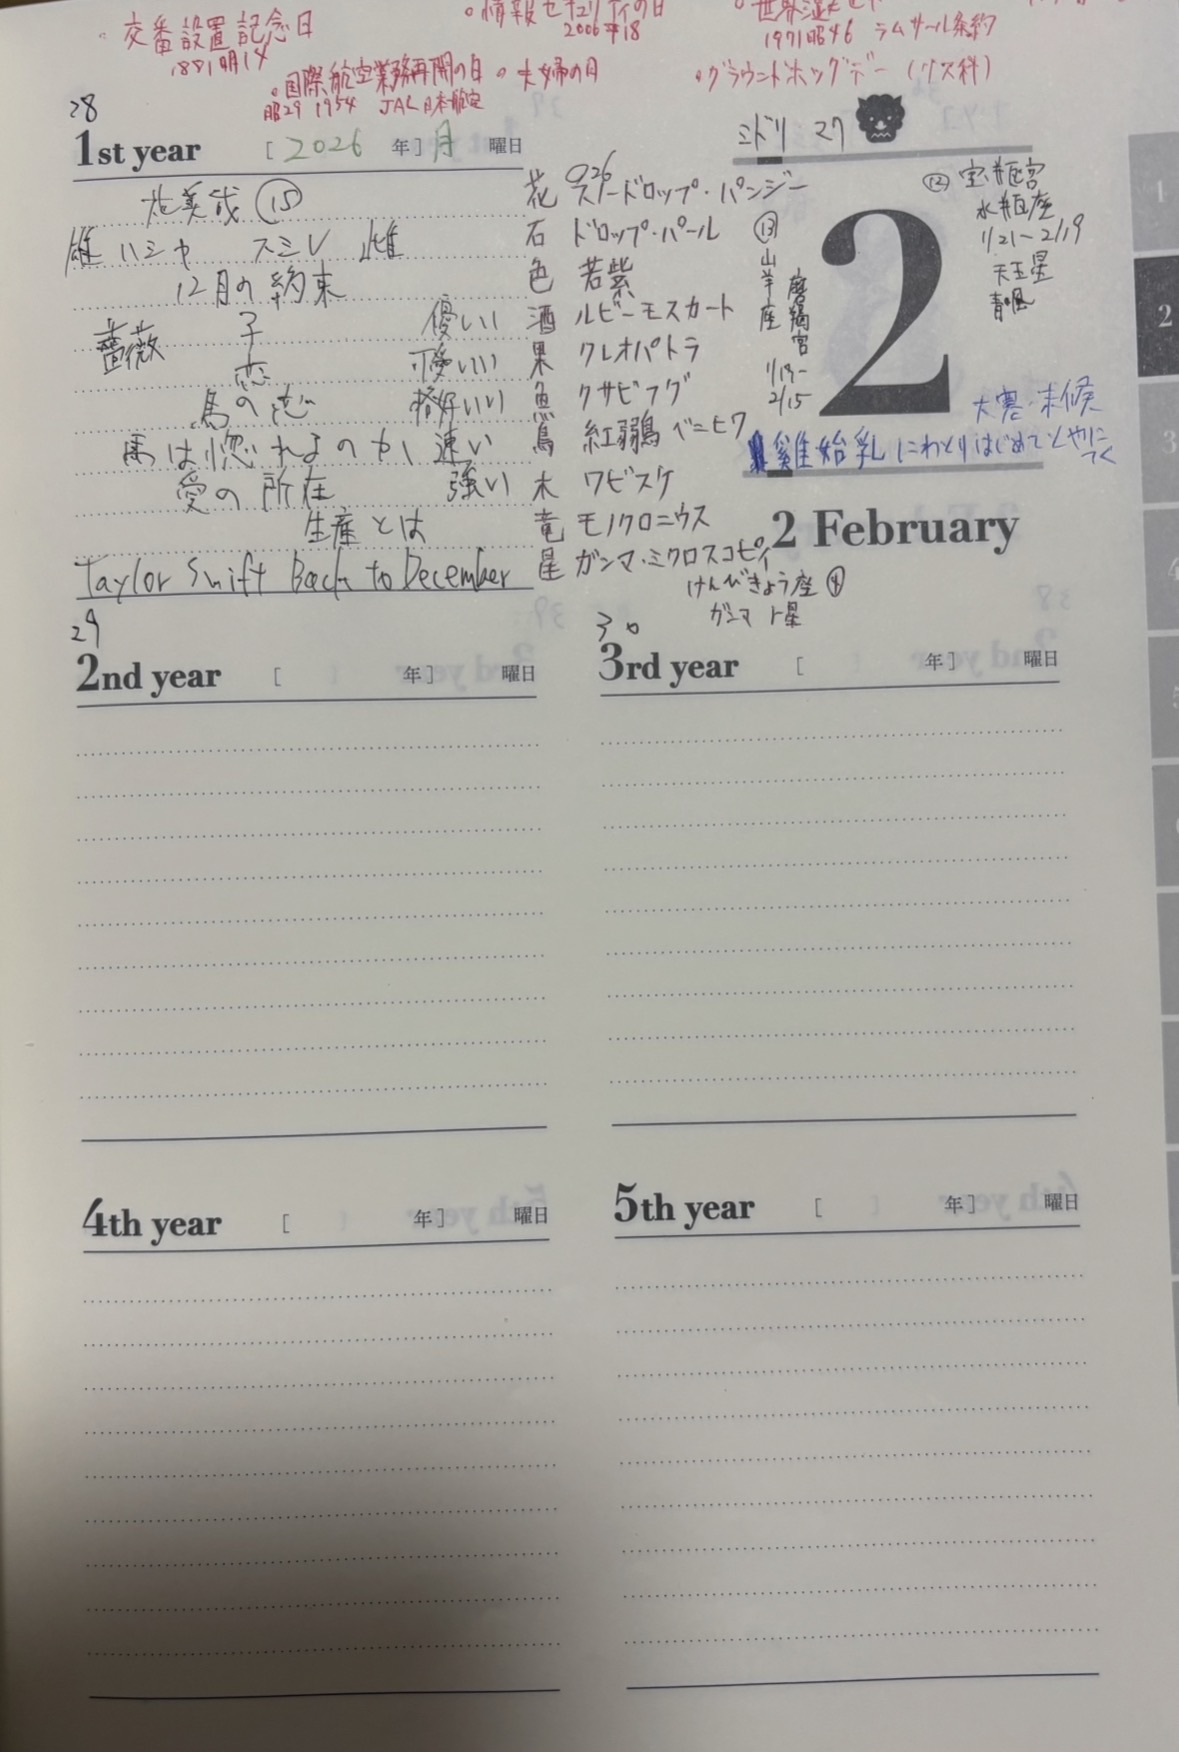 。交番設置記念日
1881明14
。情報セキュリティの日
2006平18
1971昭46 ラムサール条約
。国際航空業務再開の日
昭29 1954 JAL日本航空
。夫婦の日
。グラウンドホッグデー (リス科)
28
1st year [2026 年] 月 曜日
⑮
雄 ハシヤ スミレ 雌
12月の約束
薔薇 子 優しい
恋 可愛いい
馬の恋 格好いい
馬は惚れるのか、速い
愛の所在 強い
生産とは
Taylor Swift Back to December
926
花 スノードロップ・パンジー
石 ドロップ・パール
色 若紫
酒 ルビーモスカート
果 クレオパトラ
魚 クサビフグ
鳥 紅鶸 ベニヒワ
木 ワビスケ
竜 モノクロニウス
星 ガンマ・ミクロスコピィ
けんびきょう座 ④
ガンマ 星
ミドリ マク
⑬ 山羊座 磨羯宮
1/19~
2/15
2
⑫ 宝瓶宮
水瓶座
1/21~2/19
天王星
大寒・末候
雞始乳 にわとりはじめてとやにつく
2 February
29
2nd year [ 年] 曜日
30
3rd year [ 年] 曜日
4th year [ 年] 曜日
5th year [ 年] 曜日
1
2
3
4
5